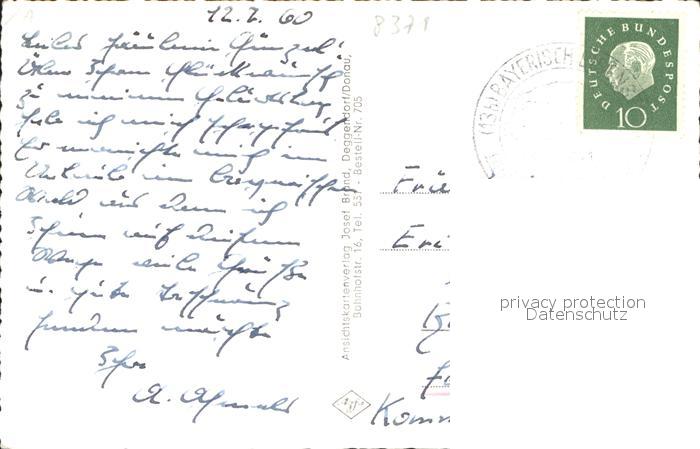 12.7.60
8371
Liebes Fräulein Günzel!
Über Ihren Glückwunsch
zu meinem Geburtstag
habe ich mich sehr gefreut
Er erreichte mich im
Urlaub im bayerischen
Wald aus dem ich
Ihnen auf diesem
Wege viele Grüße
u. gute
senden möchte
Ihr
A.
Ansichtskartenverlag Josef Brand, Deggendorf/Donau,
Bahnhofstr. 16, Tel. 557 - Bestell-Nr. 705
(13b) BAYERISCH
DEUTSCHE BUNDESPOST
10
Agfa
privacy protection
Datenschutz